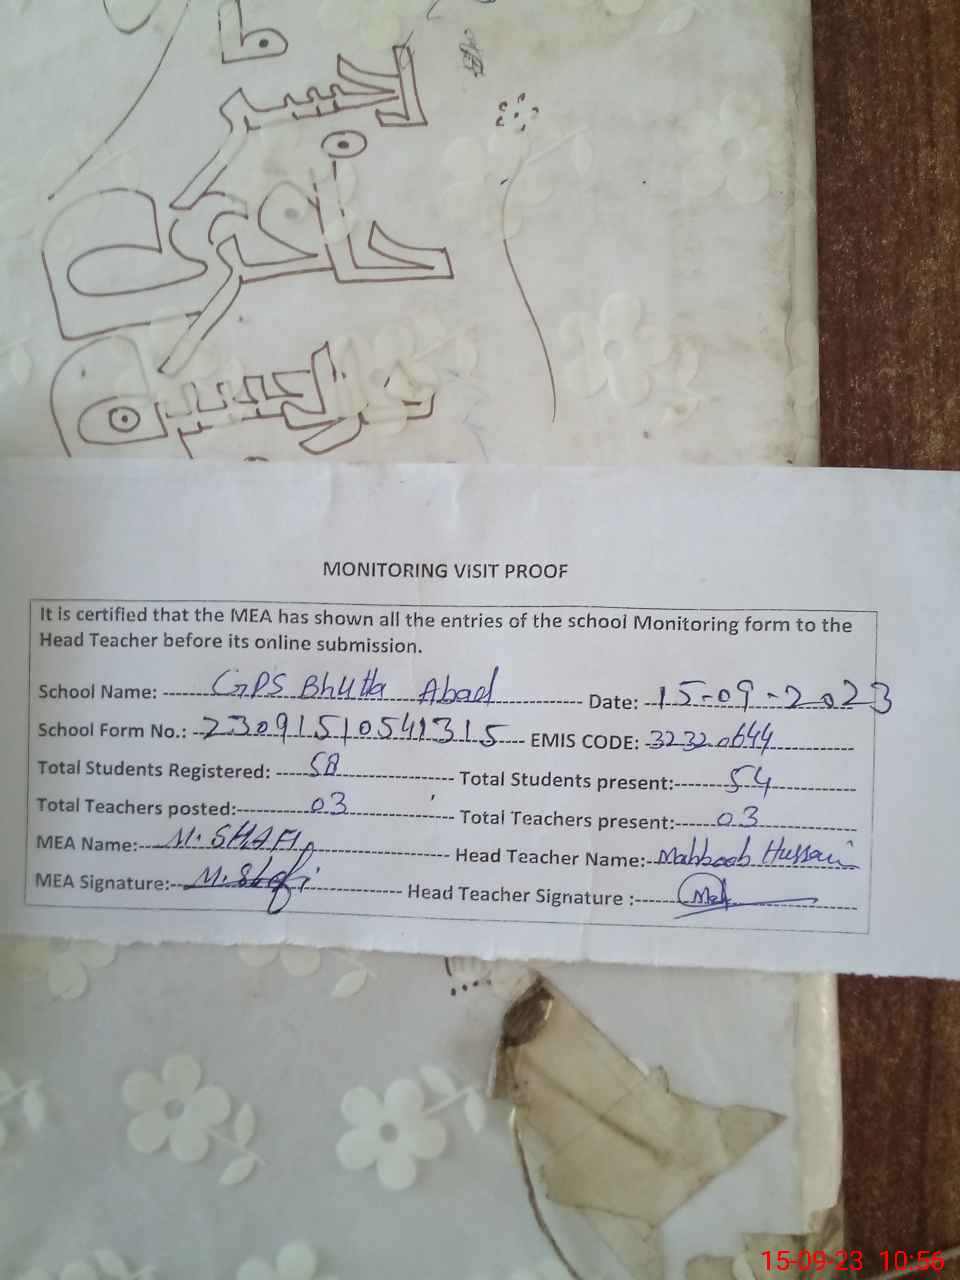 رجسٹر
حاضری
مدرسین
MONITORING ViSIT PROOF
It is certified that the MEA has shown all the entries of the school Monitoring form to the
Head Teacher before its online submission.
School Name: GPS Bhutta Abad Date: 15-09-2023
School Form No.: 23091510541315 EMIS CODE: 32320644
Total Students Registered: 58 Total Students present: 54
Total Teachers posted: 03 Total Teachers present: 03
MEA Name: M. SHAFI Head Teacher Name: Mahboob Hussain
MEA Signature: M. Shafi Head Teacher Signature :
15-09-23 10:56